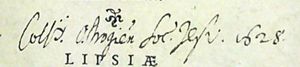 Collij. Ostrogien Soc. Jesu. 1628
LIPSIÆ